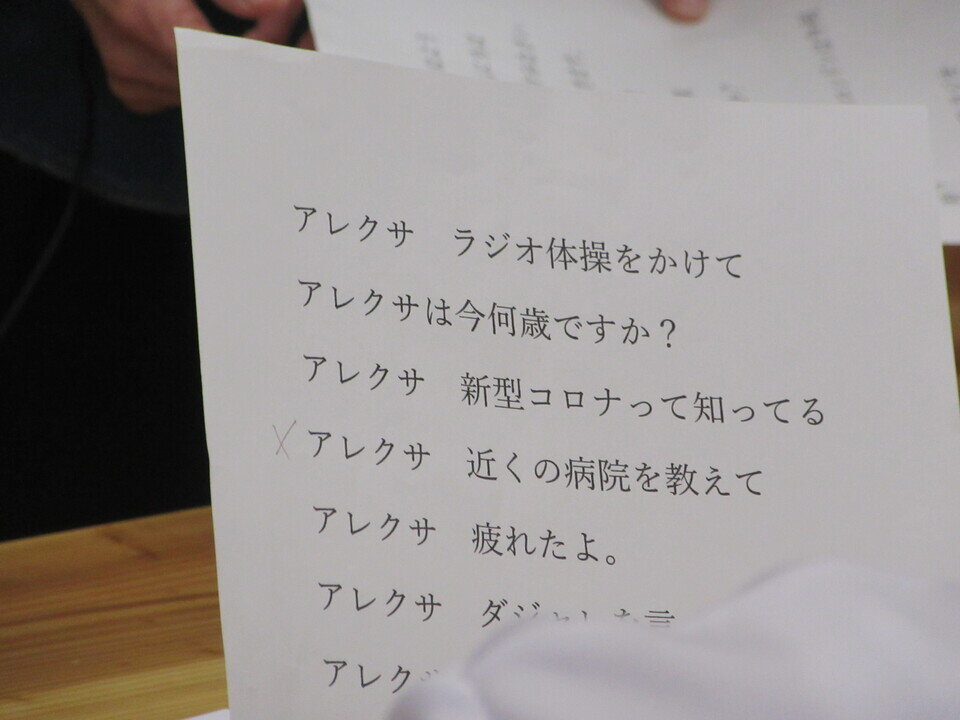 アレクサ　ラジオ体操をかけて
アレクサは今何歳ですか？
アレクサ　新型コロナって知ってる
× アレクサ　近くの病院を教えて
アレクサ　疲れたよ。
アレクサ　ダジャレ
アレク